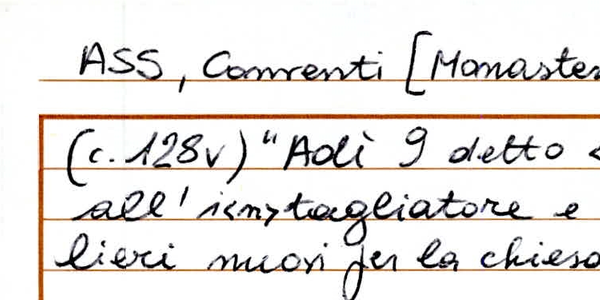 ASS, Conventi [Monaster
(c. 128v) "Adì 9 detto <
all'i<n>tagliatore e
lieri nuovi per la chiesa